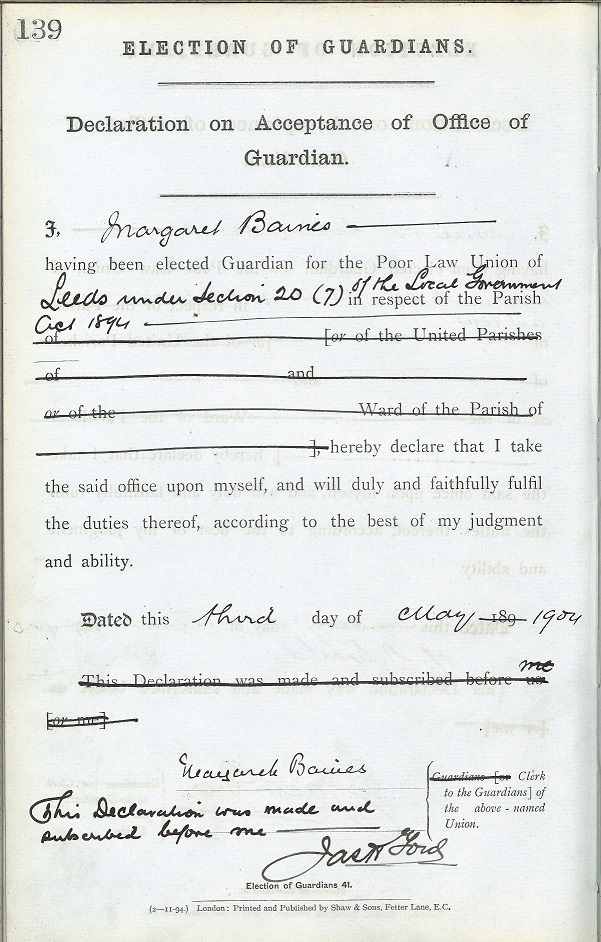 139
ELECTION OF GUARDIANS.
Declaration on Acceptance of Office of
Guardian.
I, Margaret Baines
having been elected Guardian for the Poor Law Union of
Leeds under Section 20 (7) of the Local Government
in respect of the Parish
Act 1894
of [or of the United Parishes
of and
or of the Ward of the Parish of
], hereby declare that I take
the said office upon myself, and will duly and faithfully fulfil
the duties thereof, according to the best of my judgment
and ability.
Dated this third day of May 189 1904
This Declaration was made and subscribed before us me
[or me]
Margaret Baines
This Declaration was made and
subscribed before me
Jas H Ford
Guardians [or Clerk
to the Guardians] of
the above-named
Union.
Election of Guardians 41.
(2—11-94.) London: Printed and Published by Shaw & Sons, Fetter Lane, E.C.